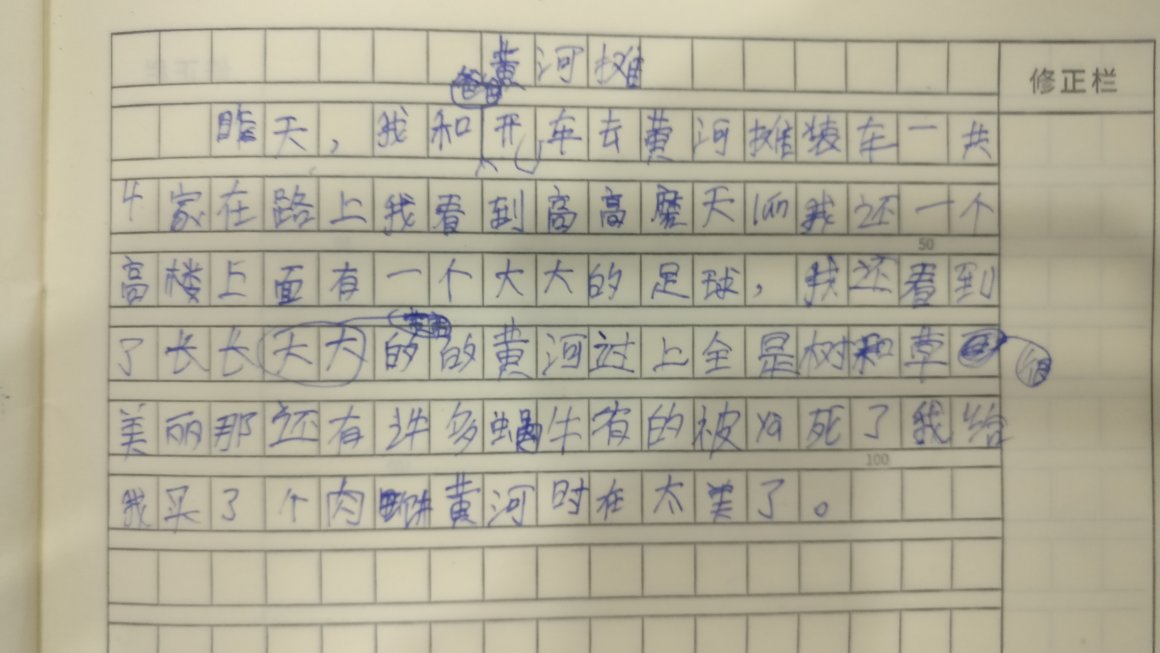 黄河摊
修正栏
昨天，我和开车去黄河摊装车一共
4家在路上我看到高高磨天我还一个
50
高楼上面有一个大大的足球，我还看到
了长长天大的的黄河过上全是树和草
很
美丽那还有许多蜗牛有的被死了我给
100
我买了个肉黄河时在太美了。